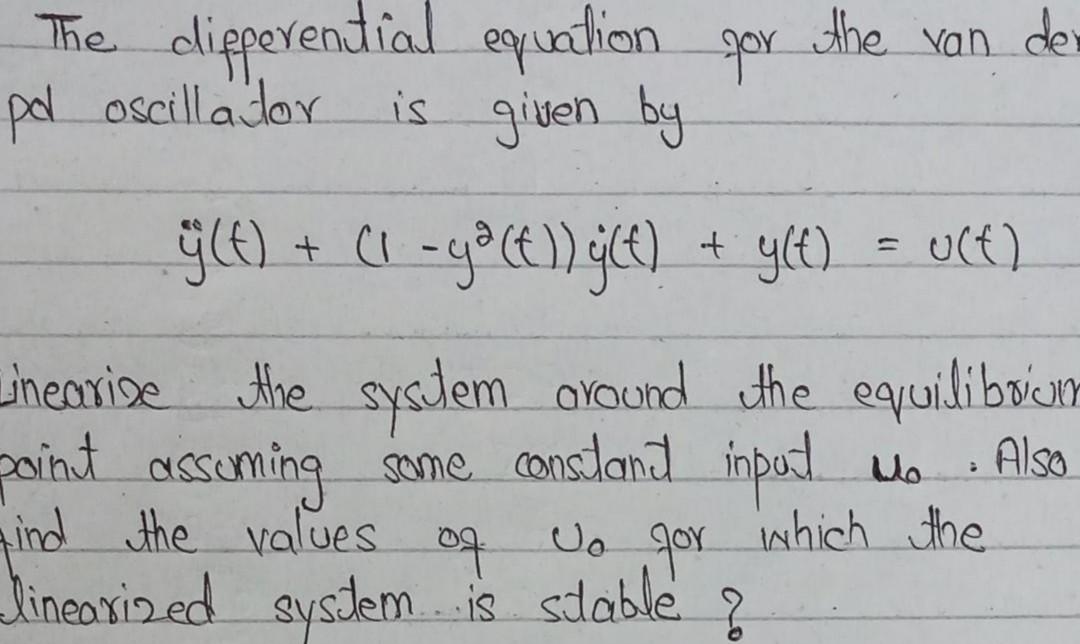 The differential equation for the van der
pol oscillator is given by
ÿ(t) + (1 - y²(t)) ẏ(t) + y(t) = u(t)
Linearise the system around the equilibrium
point assuming some constant input u₀. Also
find the values of u₀ for which the
linearized system is stable ?